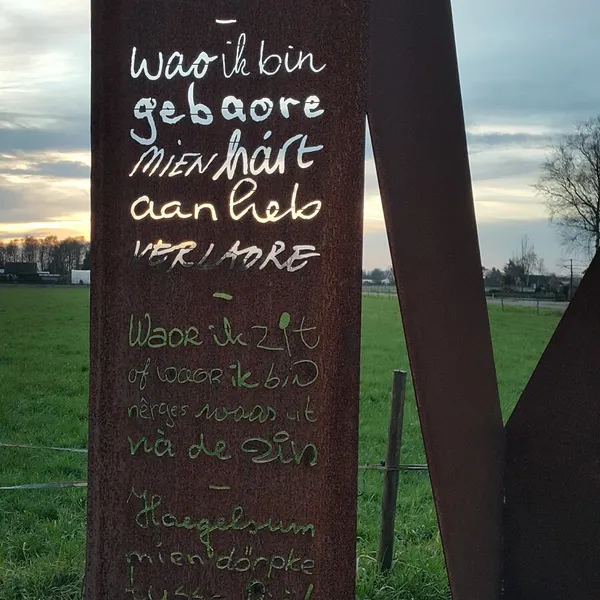 wao ik bin
gebaore
MIEN hárt
aan heb
VERLAORE
Waor ik zit
of waor ik bin
nêrges waas ut
nà de zin
Haegelsum
mien dörpke